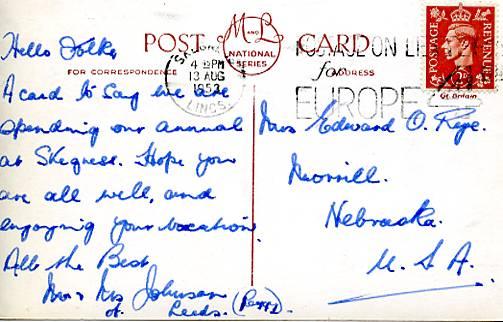 POST CARD
M AND L
NATIONAL
SERIES
FOR CORRESPONDENCE
ADDRESS
4 PM
13 AUG
1952
LINCS.
ON
for
EUROPE
POSTAGE
REVENUE
Hello Folks
A card to say we are
spending our annual
at Skegness. Hope you
are all well, and
enjoying your vacation
All the Best
Mr & Mrs Johnson
of Leeds.
Mrs Edward O. Rege.
Morrill.
Nebraska.
U. S. A.